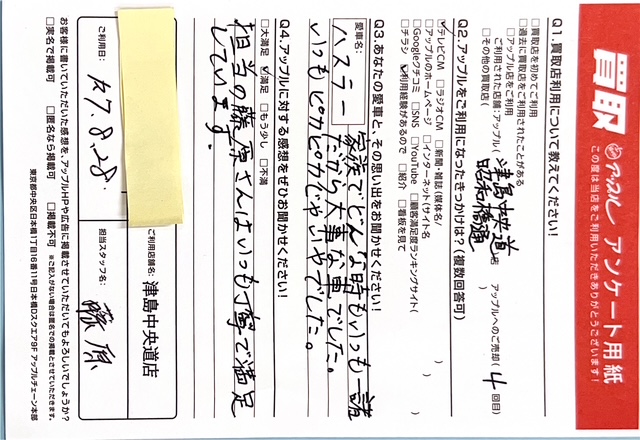 買取 アップル アンケート用紙
この度は当店をご利用いただきありがとうございます!
Q1.買取店利用について教えてください!
□買取を初めてご利用
□過去に買取店をご利用されたことがある
□アップル店をご利用
ご利用された店舗:アップル( 津島中央道 昭和橋通 店 アップルへのご売却( 4 回目)
□その他の買取店(
Q2.アップルをご利用になったきっかけは?(複数回答可)
□テレビCM □ラジオCM □新聞・雑誌(媒体名/ )
□アップルのホームページ □インターネット(サイト名 )
□Googleクチコミ □SNS □YouTube □顧客満足度ランキングサイト( )
□チラシ ☑利用経験があるので □紹介 □看板を見て
Q3.あなたの愛車と、その思い出をお聞かせください!
愛車名: ハスラー
家族でどんな時もいつも一諸
だから大事な車でした。
いつもピカピカじゃいやでした。
Q4.アップルに対する感想をぜひお聞かせください!
□大満足 ☑満足 □もう少し □不満
担当の藤原さんはいつも丁寧で満足
しています。
ご利用日: R7.8.28.
ご利用店舗名: 津島中央道店
担当スタッフ名: 藤原
お客様に書いていただいた感想を、アップルHPや広告に掲載させていただいてもよろしいでしょうか?
□実名で掲載可 □匿名なら掲載可 □掲載不可 ※ご記入がない場合は匿名での掲載とさせていただきます。
東京都中央区日本橋1丁目16番11号日本橋DスクエアGF アップルチェーン本部